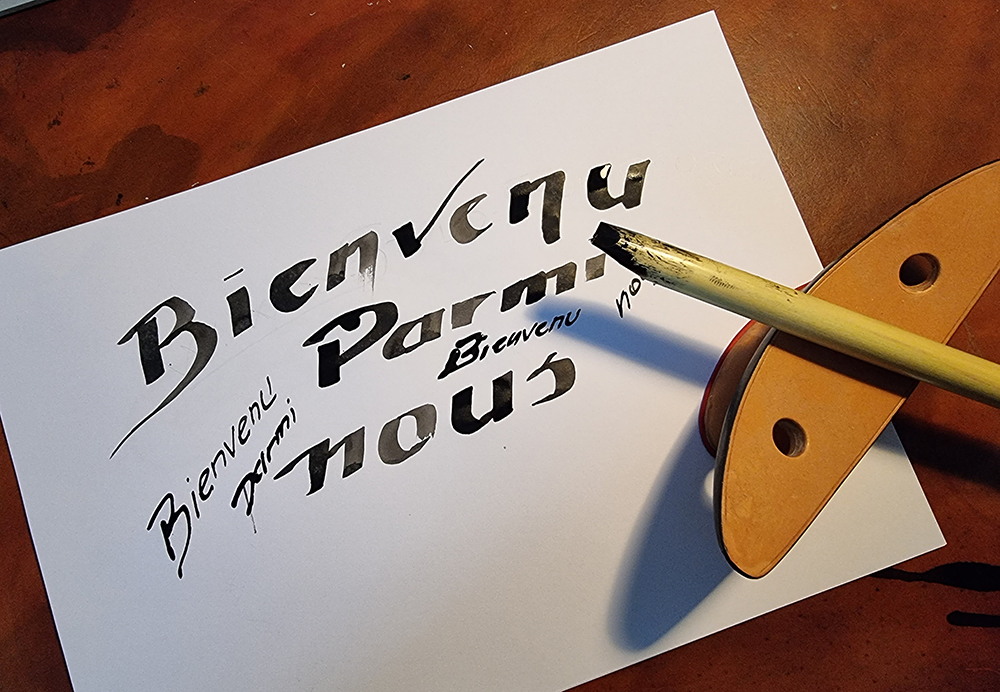 Bienvenu
Parmi
Bienvenu
nous
Bienvenu
parmi